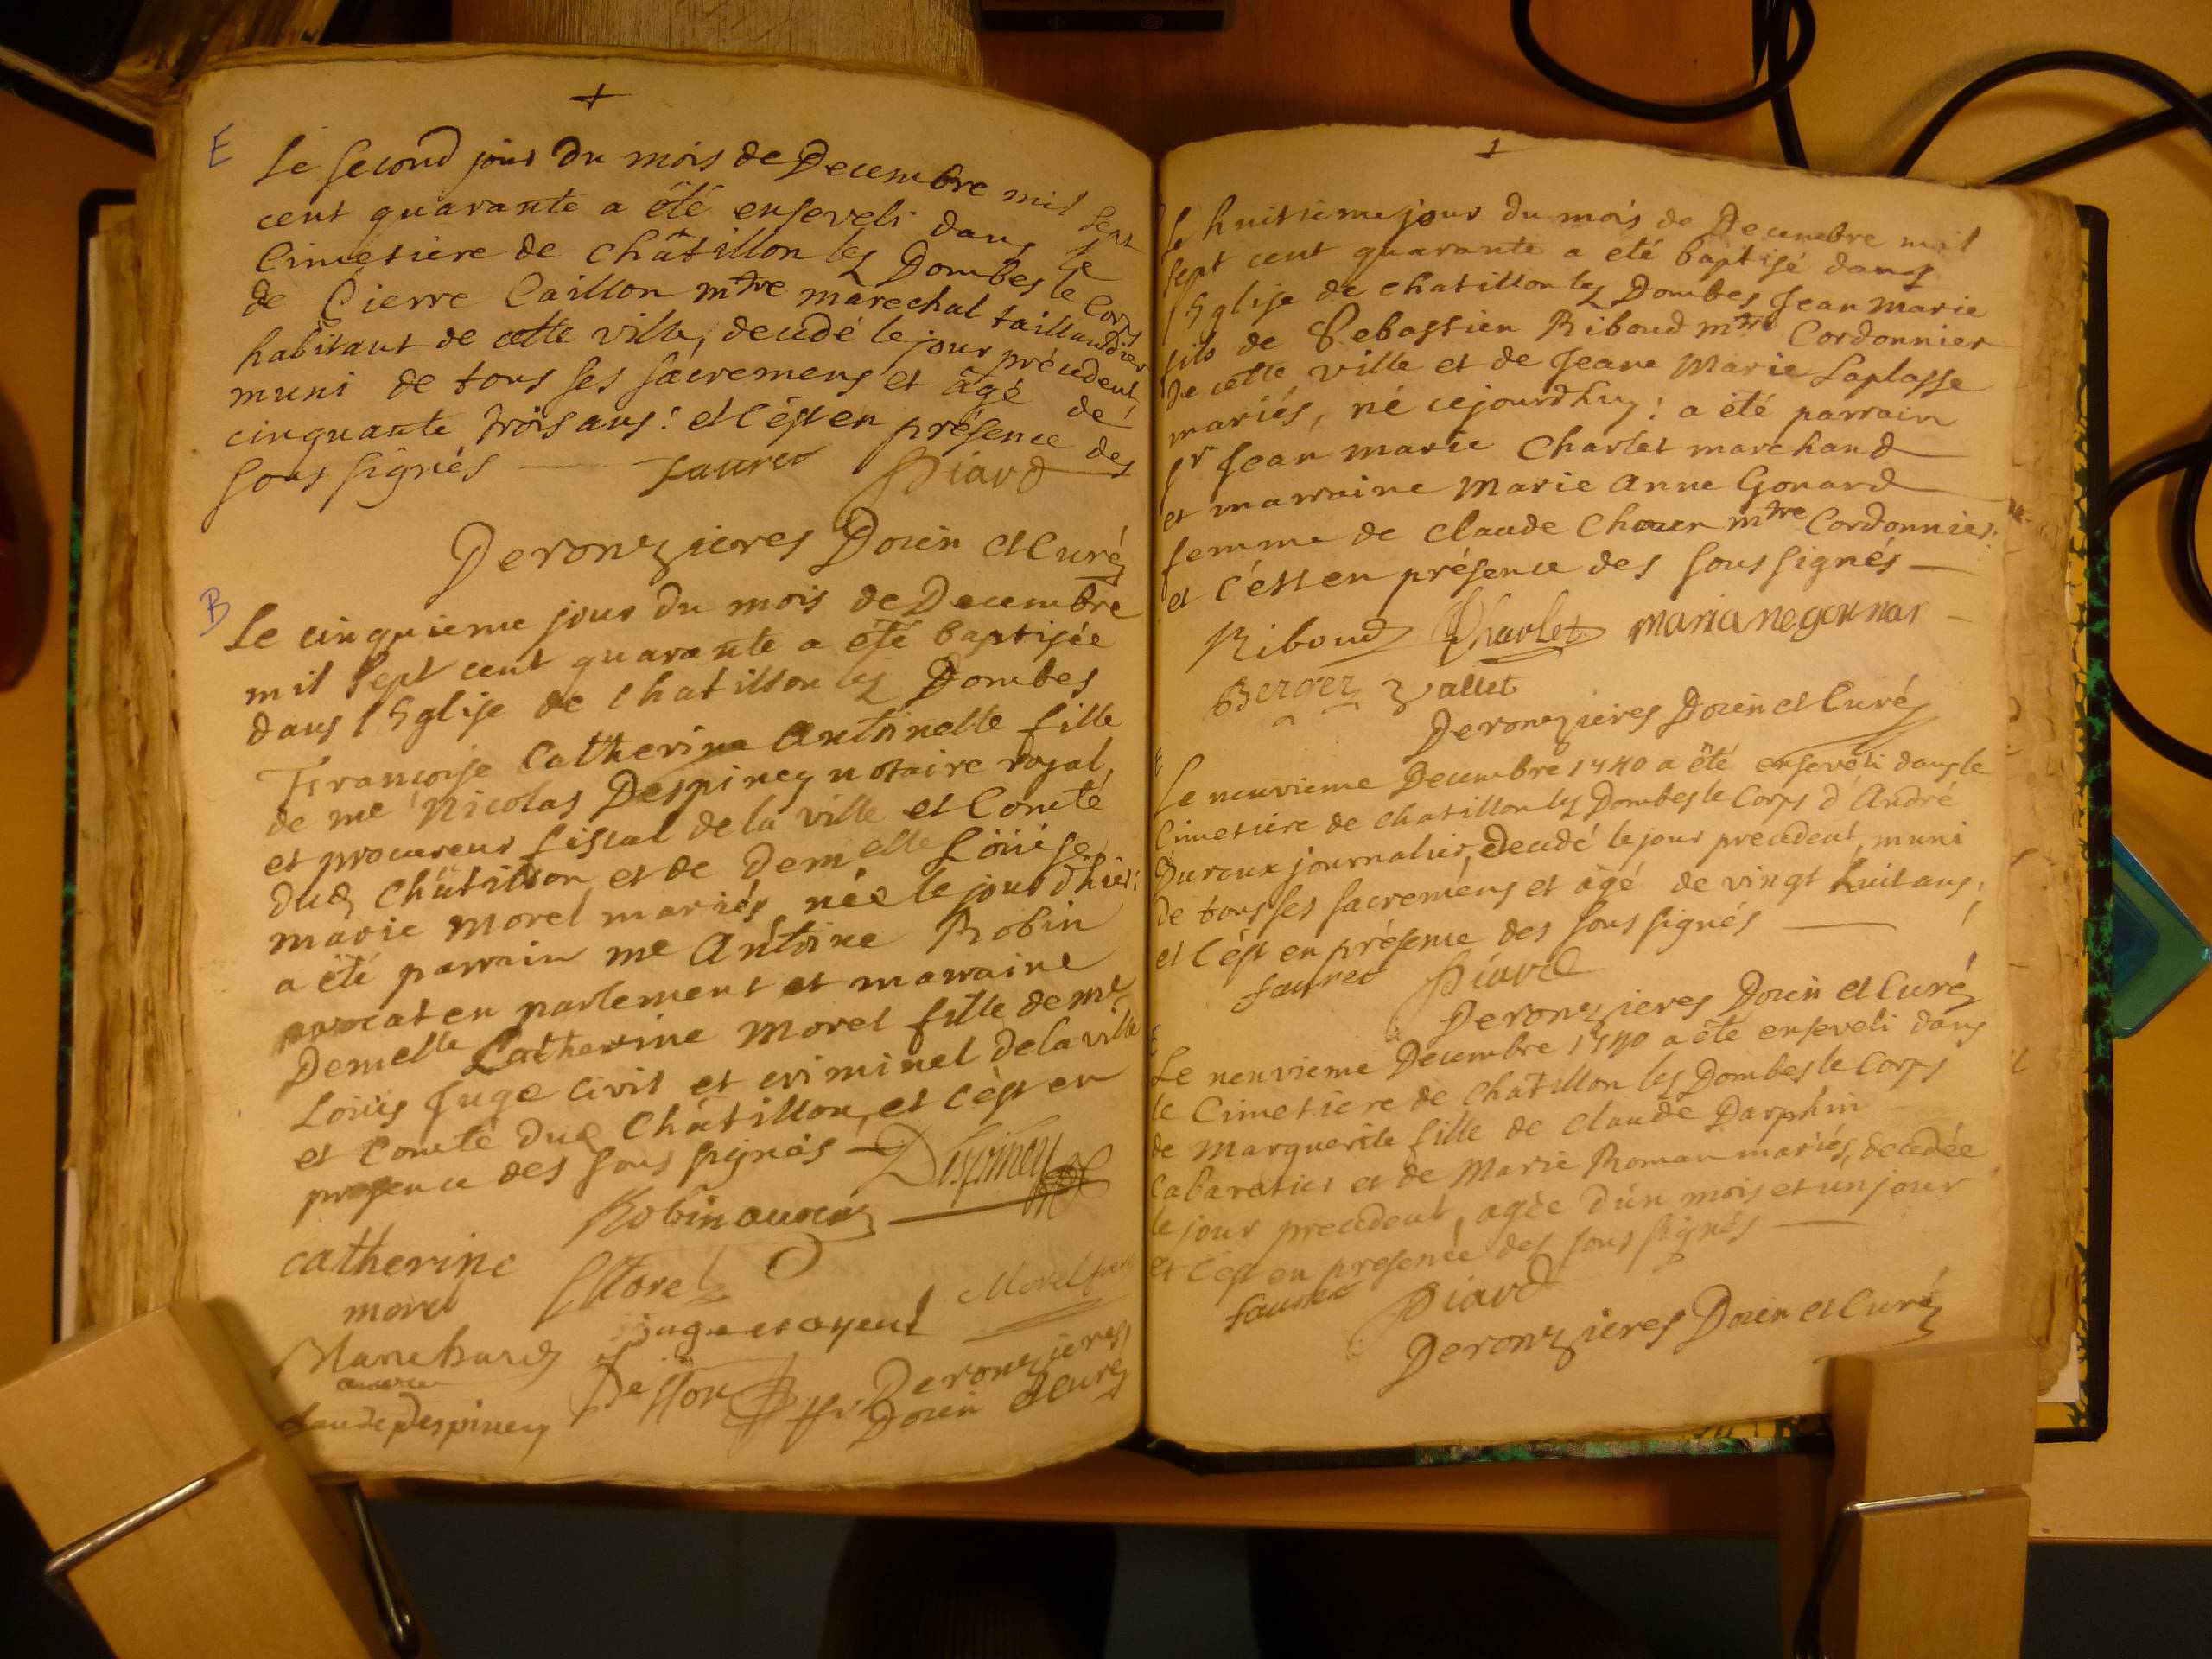 +
E
Le second jour du mois de Decembre mil sept
cent quarante a été enseveli dans le
Cimetiere de Châtillon les Dombes le Corps
de Pierre Caillon mtre marechal taillandier
habitant de cette ville, decedé le jour précedent,
muni de tous ses sacremens et âgé de
cinquante trois ans: et c'est en présence des
sous signés faurec Piard
Deronzieres Doien et Curé
B
Le cinquieme jour du mois de Decembre
mil sept cent quarante a été baptisée
dans l'Eglise de chatillon les Dombes
Francoise Catherine Antoinette fille
de me Nicolas Despiney notaire royal,
et procureur fiscal de la ville et Comté
dud Châtillon, et de Demelle Loüise
marie Morel mariés née le jour d'hier:
a été parrain me Antoine Robin
avocat en parlement et marraine
Demelle Catherine Morel fille de me
Loüis Juge civil et criminel de la ville
et Comté dud Châtillon, et c'est en
presence des sous signés Despiney
Robin avocat
catherine Morel Morel
morel juge et ayeul
Blanchard
Claude Despiney Deronzieres
Doien et Curé
+
Le huitieme jour du mois de Decembre mil
sept cent quarante a eté baptisé dans
l'Eglise de chatillon les Dombes Jean Marie
fils de Sebastien Riboud mtre Cordonnier
de cette ville et de Jeane Marie Laplasse
mariés, né cejourdhuy: a été parrain
sr Jean marie Charlet marchand
et marraine Marie Anne Gonard
femme de Claude Chouer mtre Cordonnier:
et c'est en présence des sous signés
Riboud Charlet marianegonnar
Berger Vallet
Deronzieres Doien et Curé
Le neuvieme Decembre 1740 a été enseveli dans le
Cimetiere de chatillon les Dombes le Corps d'André
Duroux journalier, decedé le jour precedent, muni
de tous ses sacremens et âgé de vingt huit ans,
et c'est en présence des sous signés
faurec Piard
Deronzieres Doien et Curé
Le neuvieme Decembre 1740 a été enseveli dans
le Cimetiere de châtillon les Dombes le Corps
de Marguerite fille de Claude Darphin
Cabaretier et de Marie Roman mariés, decedée
le jour precedent, agée d'un mois et un jour
et c'est en presence des sous signés
faurec Piard
Deronzieres Doien et Curé